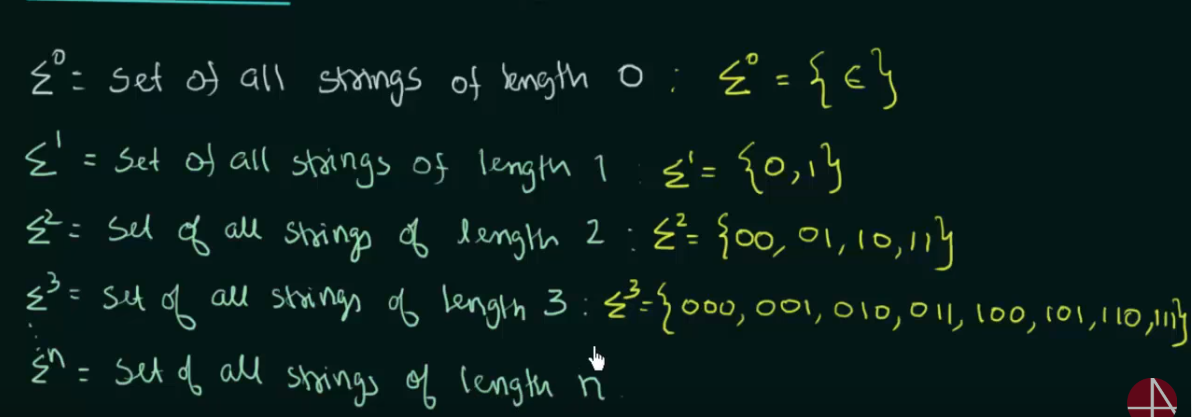 Σ⁰ = set of all strings of length 0 : Σ⁰ = {ϵ}
Σ¹ = set of all strings of length 1 : Σ¹ = {0,1}
Σ² = set of all strings of length 2 : Σ² = {00, 01, 10, 11}
Σ³ = set of all strings of length 3 : Σ³ = {000, 001, 010, 011, 100, 101, 110, 111}
:
Σⁿ = set of all strings of length n